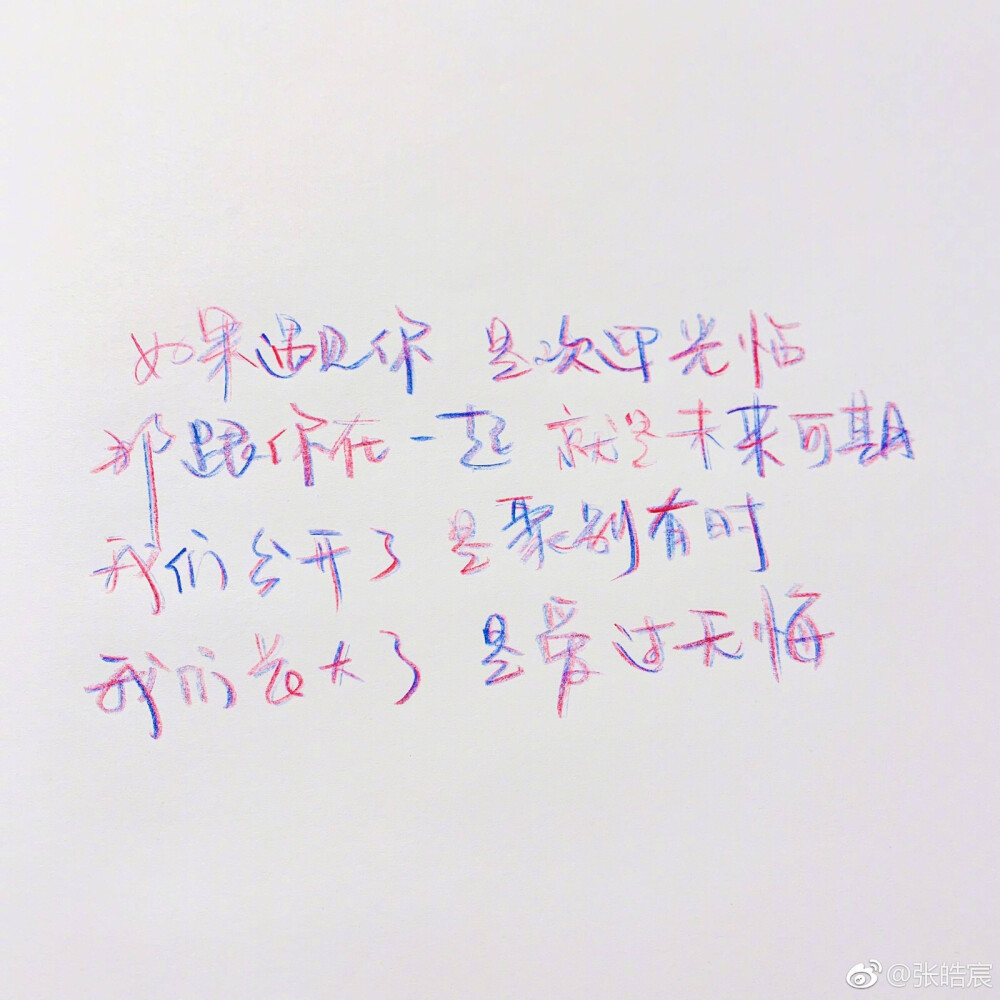 如果遇见你 是欢迎光临
那跟你在一起 就是未来可期
我们分开了 是聚别有时
我们长大了 是爱过无悔
@张皓宸